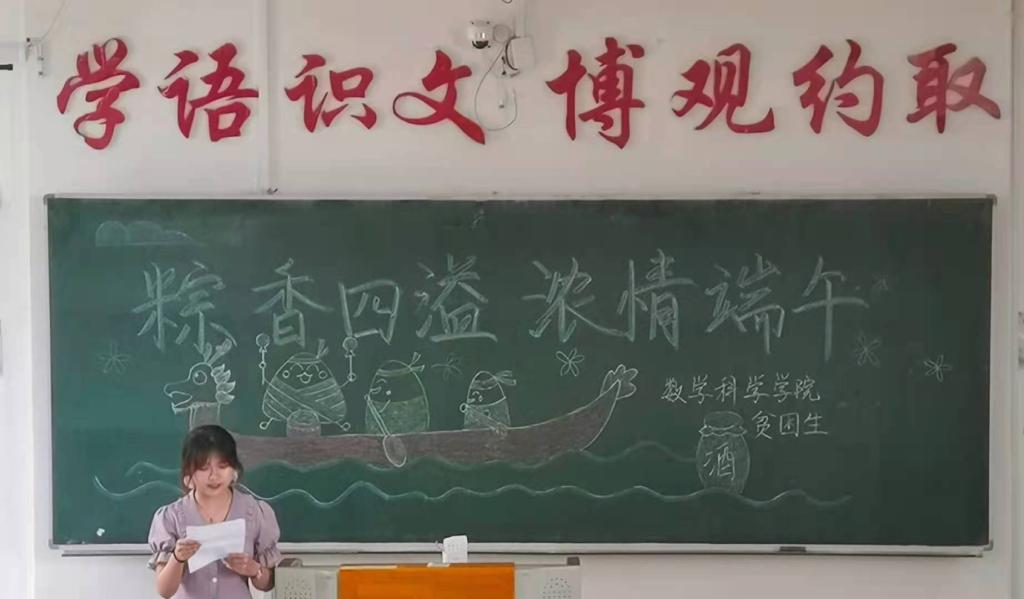 学语识文 博观约取
粽香四溢 浓情端午
数学科学学院
贫困生
酒